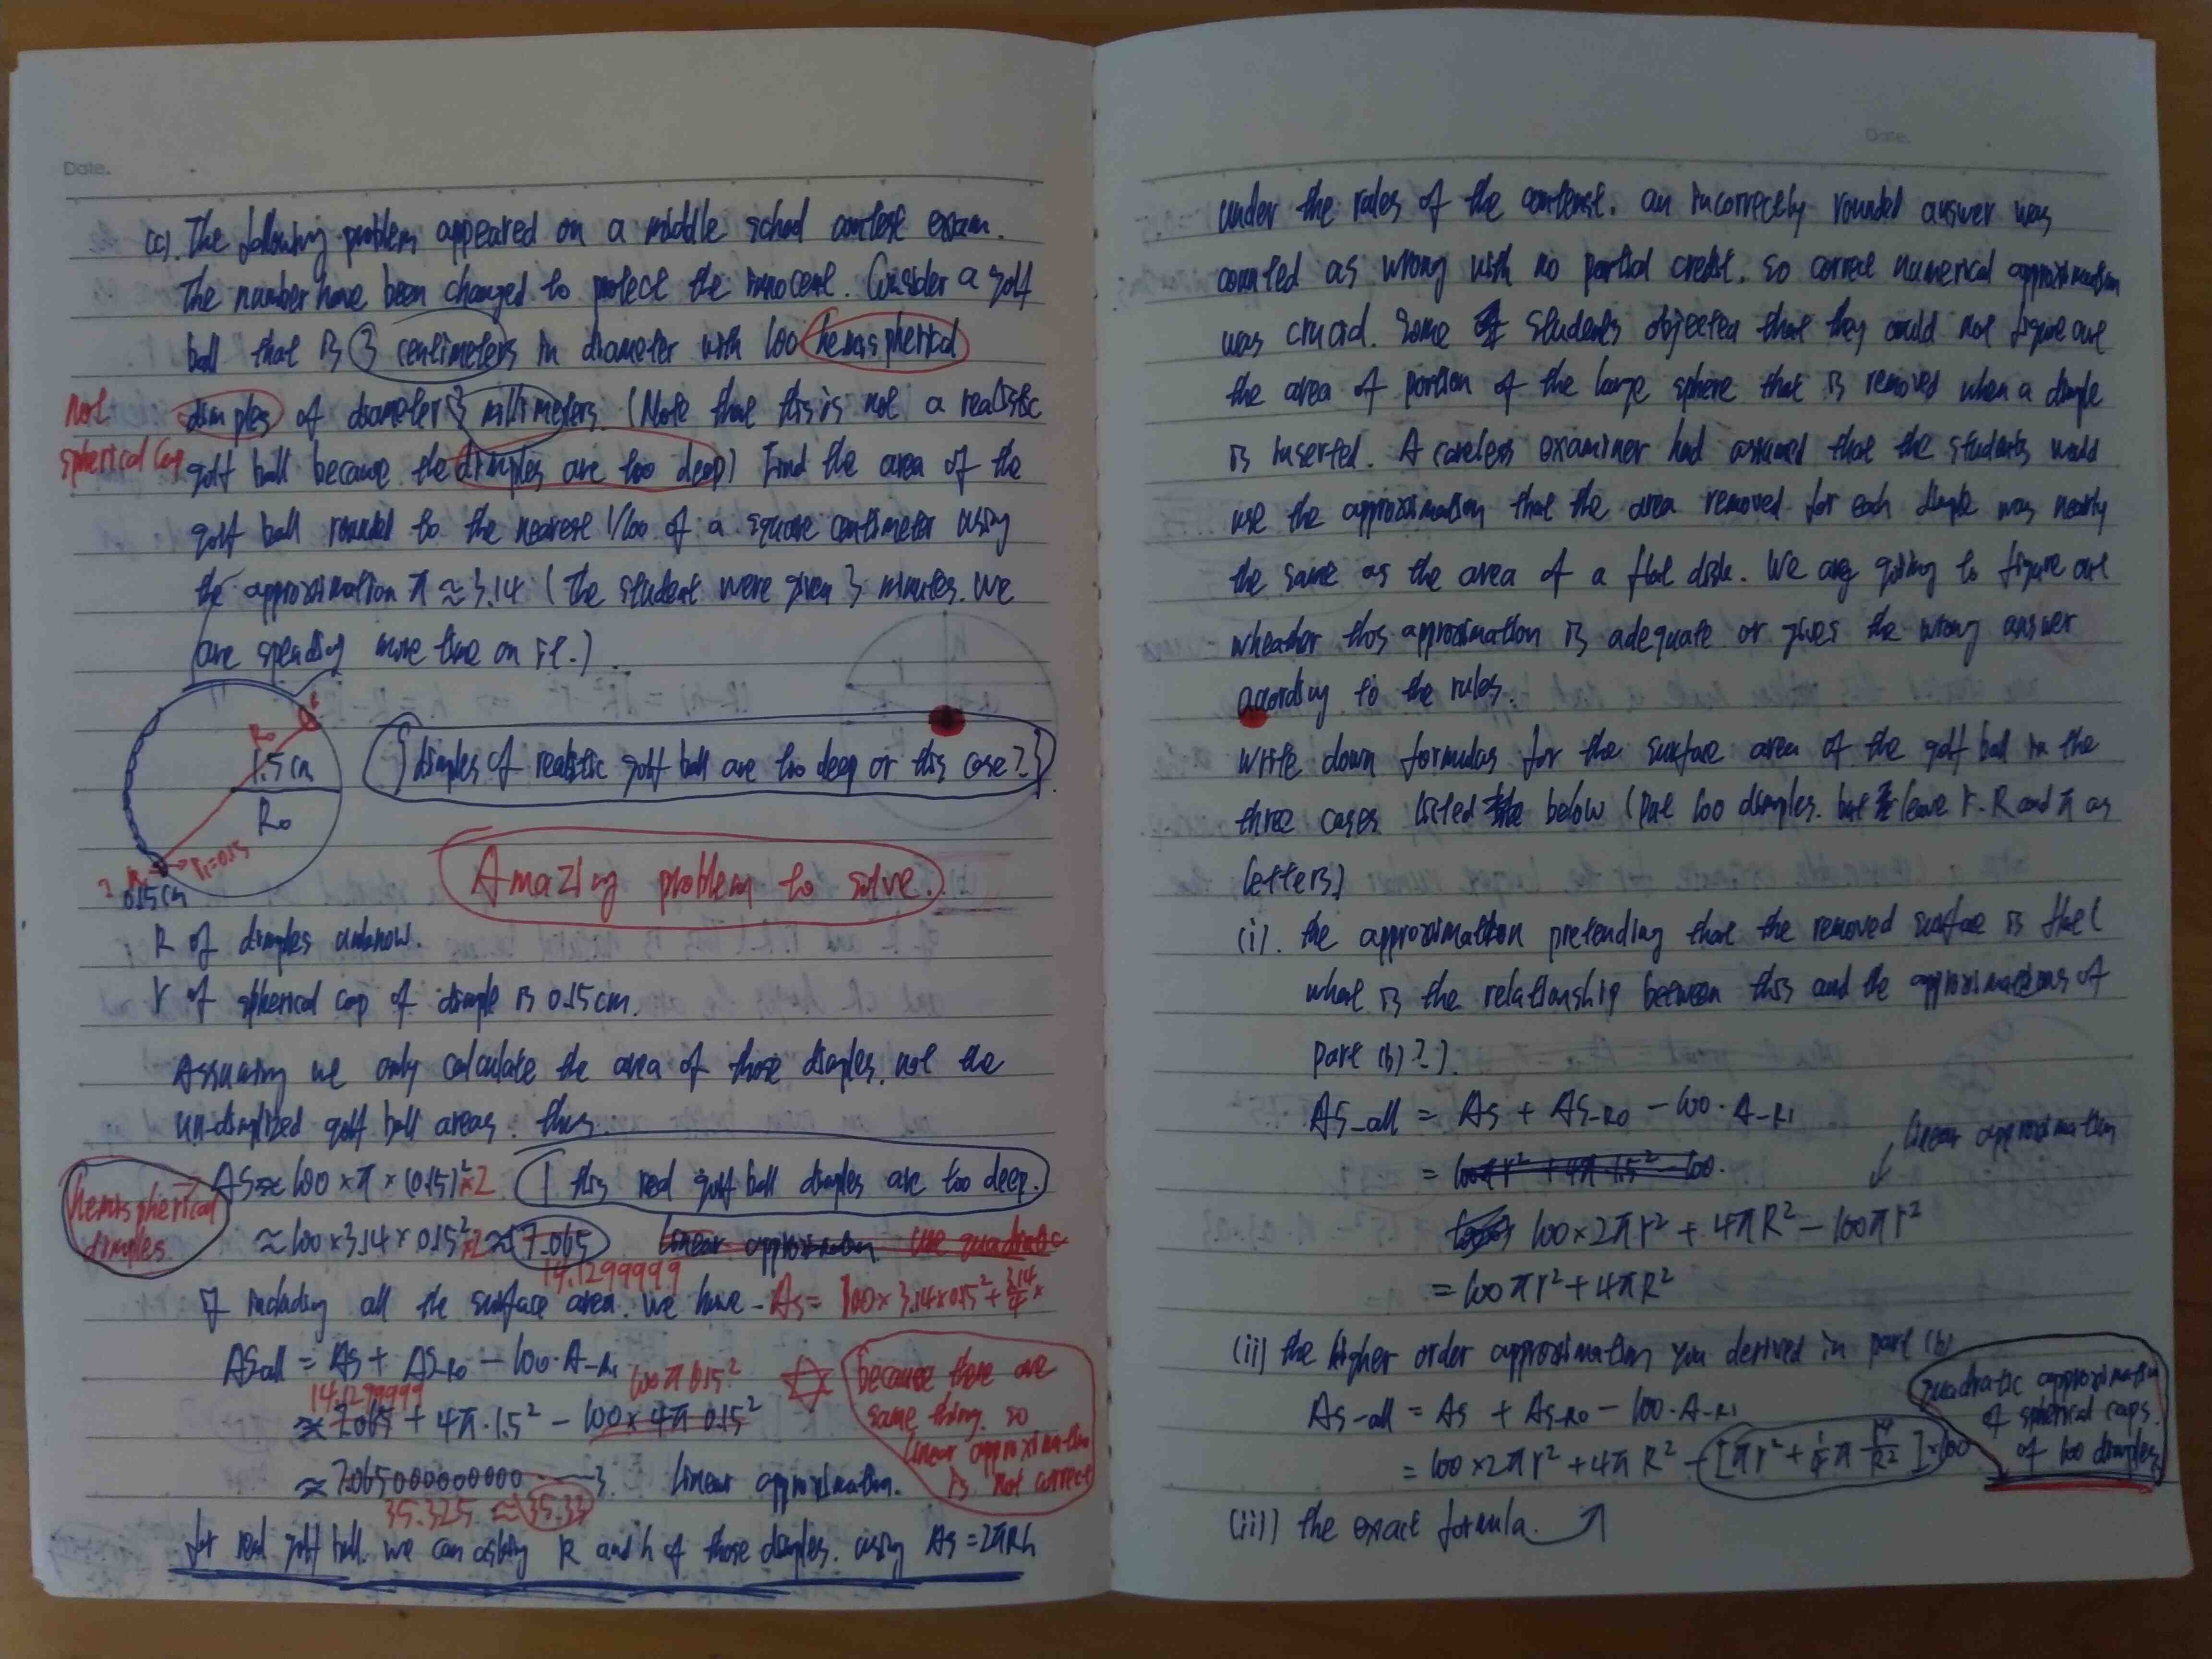 Date.
(c). The following problem appeared on a middle school contest exam.
The number have been changed to protect the innocent. Consider a golf
ball that is 3 centimeters in diameter with 100 hemispherical
Not
spherical cap
dimples of diameter 3 millimeters. (Note that this is not a realistic
golf ball because the dimples are too deep) Find the area of the
golf ball rounded to the nearest 1/100 of a square centimeter using
the approximation π ≈ 3.14 (The student were given 3 minutes. We
are spending more time on it.)
R₀
1.5cm
R₀
R₁=0.15
0.15cm
{dimples of realistic golf ball are too deep or this case?}
Amazing problem to solve.
R of dimples unknow.
r of spherical cap of dimple is 0.15cm.
Assuming we only calculate the area of those dimples, not the
un-dimplized golf ball areas. thus
hemispherical
dimples.
As ≈ 100 × π × (0.15)² ×2 (this real golf ball dimples are too deep.)
≈ 100 × 3.14 × 0.15² ×2 ≈ 7.065 linear approximation use quadratic
14.1299999
if including all the surface area. we have - As = 100 × 3.14 × 0.15² + 3.14/4 ×
AS_all = As + AS_R₀ − 100·A_R₁
14.1299999 100π 0.15²
≈ 7.065 + 4π·1.5² − 100 × 4π 0.15²
because there are
same thing. so
linear approximation
is not correct
≈ 7.065000000000 linear approximation.
35.325 ≈ 35.33
for real golf ball. we can R and h of those dimples. using As = 2πRh
Date.
under the rules of the contense. an incorrectly rounded answer was
counted as wrong with no partial credit. so correct numerical approximation
was crucial. Some students objected that they could not figure out
the area of portion of the large sphere that is removed when a dimple
is inserted. A careless examiner had assumed that the students would
use the approximation that the area removed for each dimple was nearly
the same as the area of a flat disk. We are going to figure out
wheather this approximation is adequate or gives the wrong answer
acording to the rules.
Write down formulas for the surface area of the golf ball in the
three cases listed below (Put 100 dimples. but leave r. R and π as
letters)
(i). the approximation pretending that the removed surface is flat (
what is the relationship between this and the approximations of
part (b)?).
AS_all = As + AS_R₀ − 100·A_R₁
linear approximation
= 100πr² + 4π·1.5² − 100.
100×2πr² + 4πR² − 100πr²
= 100πr² + 4πR²
(ii) the higher order approximation you derived in part (b)
quadratic approximation
of spherical caps.
of 100 dimples
As_all = As + As_R₀ − 100·A_R₁
= 100×2πr² + 4πR² − [πr² + ¼π r⁴/R²]×100
(iii) the exact formula. ↗